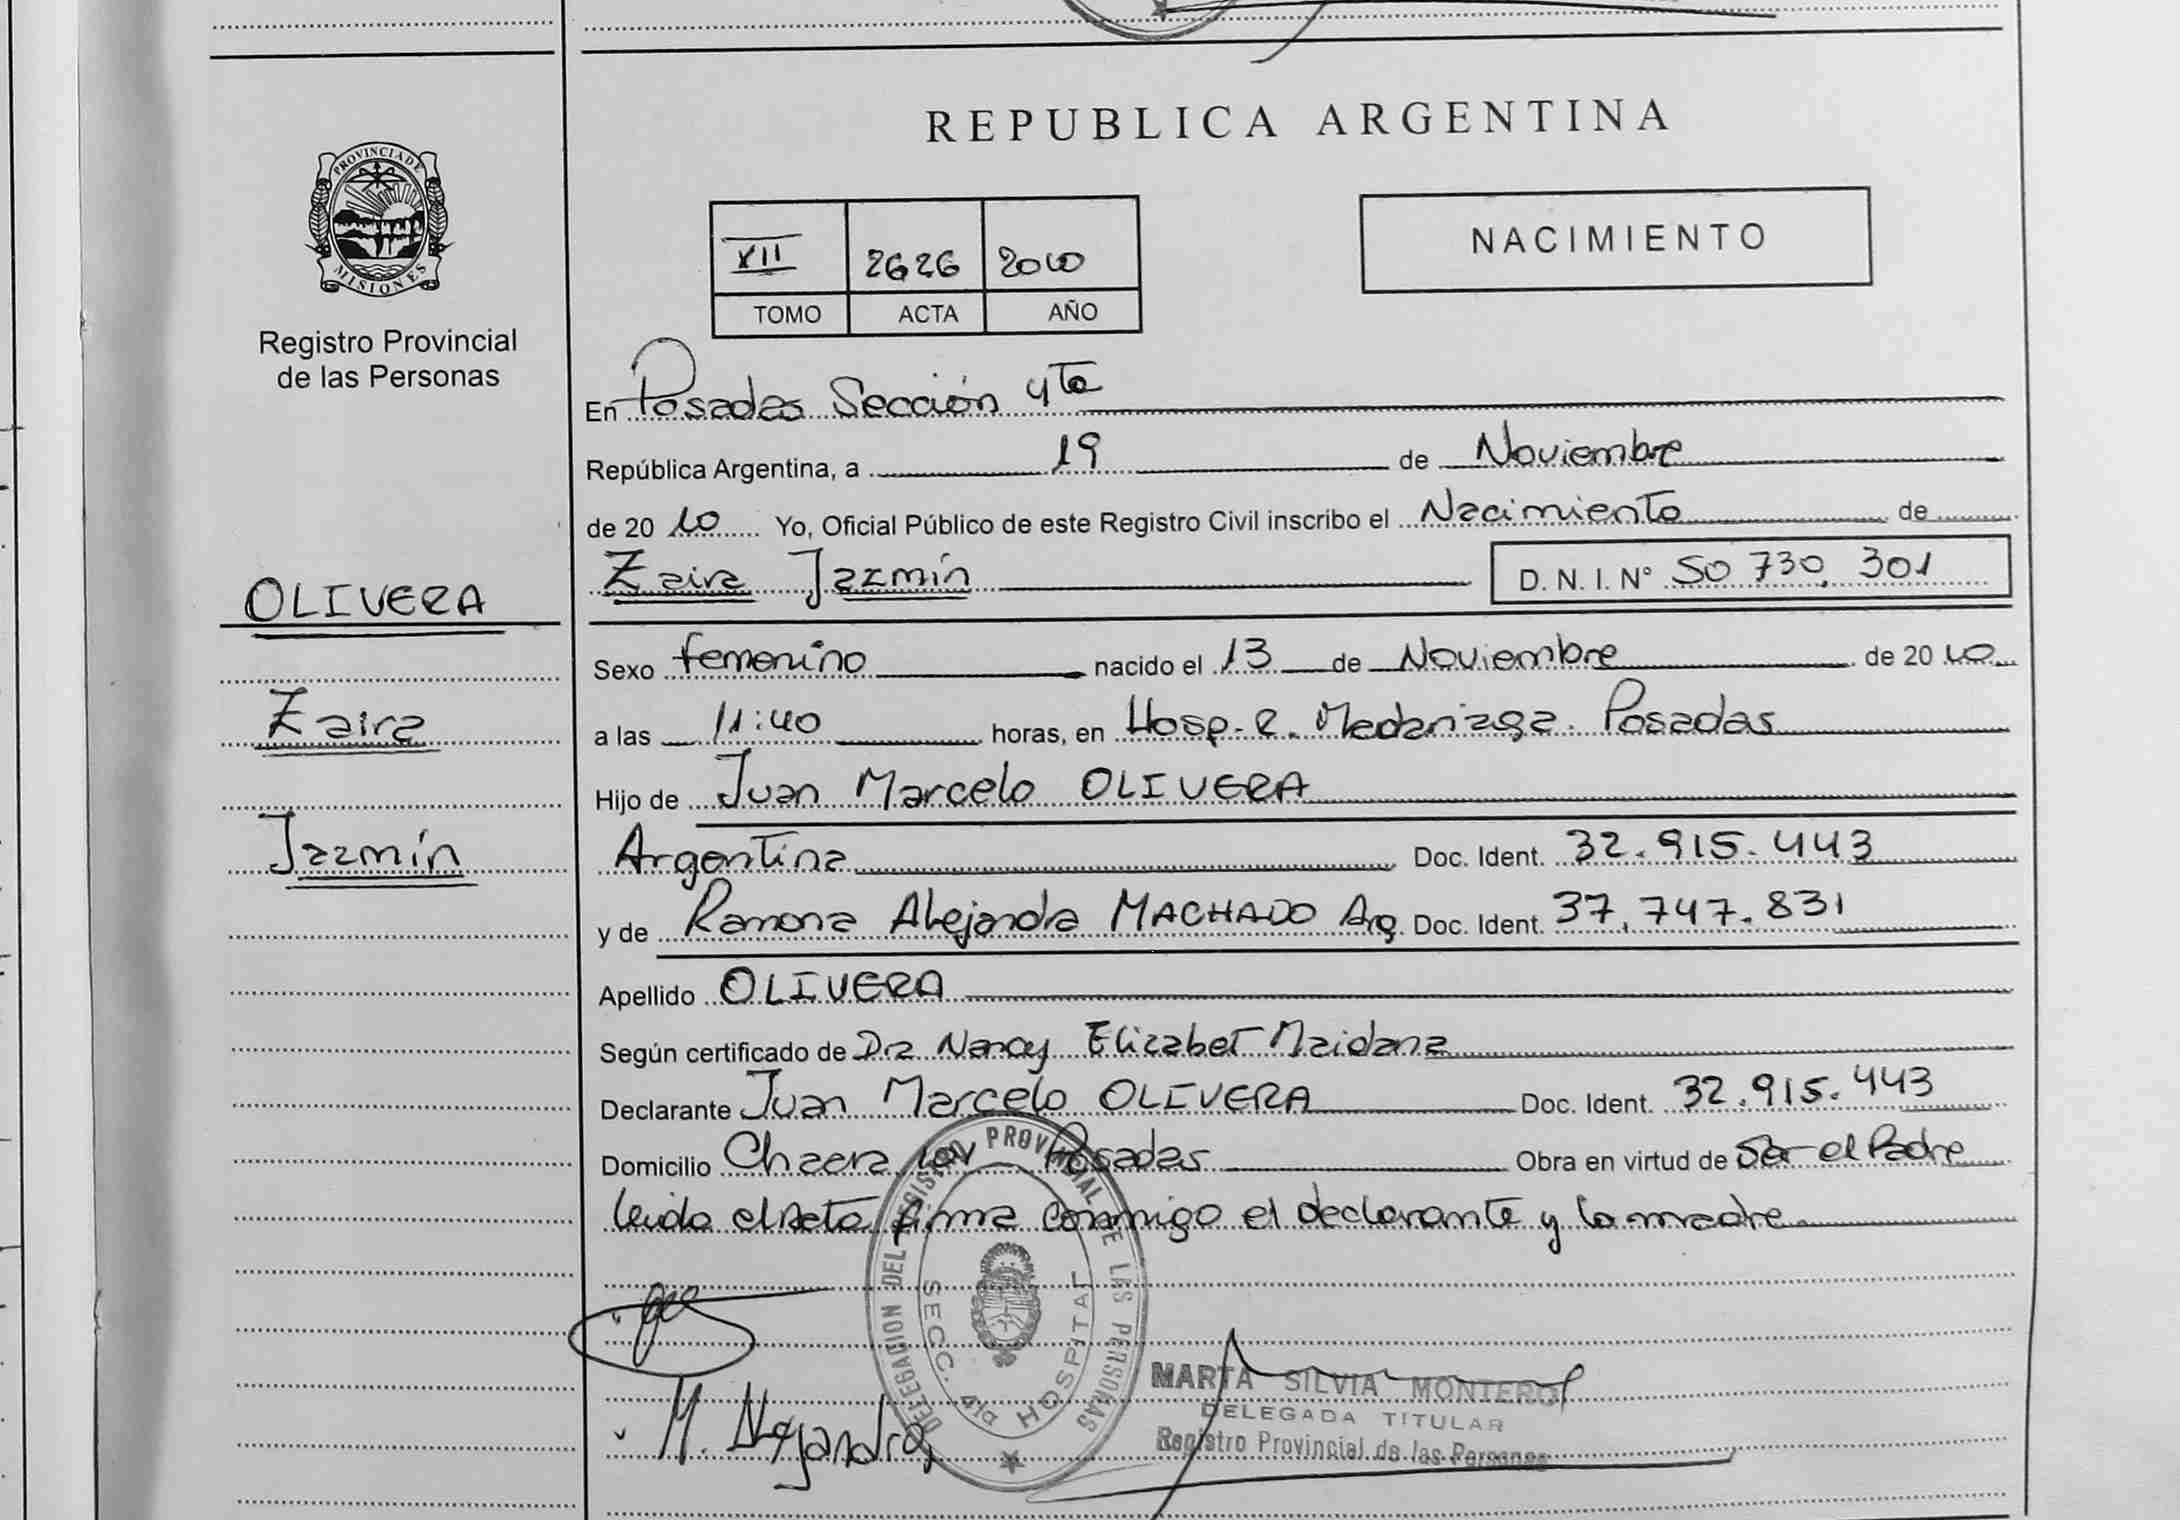 REPUBLICA ARGENTINA
PROVINCIA DE
MISIONES
Registro Provincial
de las Personas
XII 2626 2010
TOMO ACTA AÑO
NACIMIENTO
En Posadas Sección 4ta
República Argentina, a 19 de Noviembre
de 20 10 Yo, Oficial Público de este Registro Civil inscribo el Nacimiento de
Zaira Jazmín D. N. I. N° 50 730, 301
OLIVERA
Zaira
Jazmín
Sexo femenino nacido el 13 de Noviembre de 20 10
a las 11:40 horas, en Hosp. R. Madariaga. Posadas
Hijo de Juan Marcelo OLIVERA
Argentina Doc. Ident. 32.915.443
y de Ramona Alejandra MACHADO Arg. Doc. Ident. 37,747.831
Apellido OLIVERA
Según certificado de Dra Nancy Elizabet Maidana
Declarante Juan Marcelo OLIVERA Doc. Ident. 32.915.443
Domicilio Chacra Posadas Obra en virtud de Ser el Padre
leida el Acta firma conmigo el declarante y la madre
DELEGACION DEL REGISTRO PROVINCIAL DE LAS PERSONAS
SECC. 4ta HOSPITAL
M. Alejandra
MARTA SILVIA MONTERO
DELEGADA TITULAR
Registro Provincial de las Personas